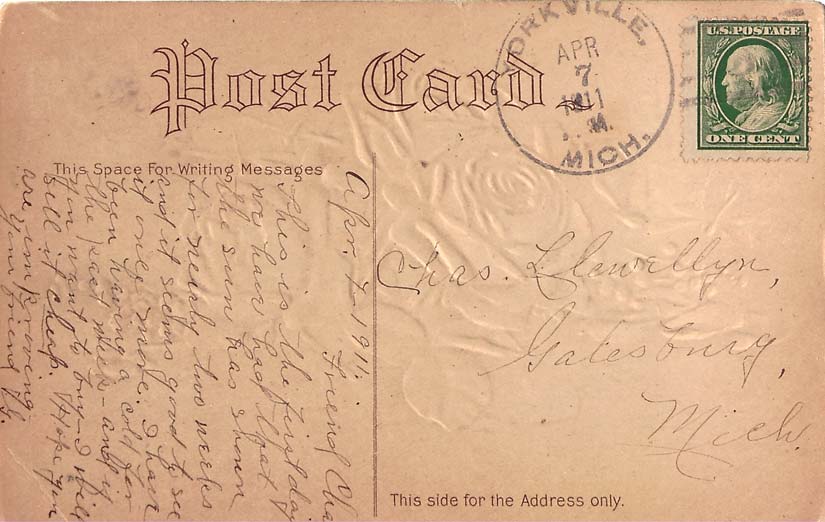 Post Card
YORKVILLE,
APR
7
1911
M.
MICH.
U.S. POSTAGE
ONE CENT
This Space For Writing Messages
Apr. 7-1911.
Friend Cha
This is the first day
we have had that
the sun has shown
for nearly two weeks
and it seems good to see
it once more. I have
been having a cold for
the past week - and if
you want to buy - I will
sell it cheap. Hope you
are improving
Your friend
Chas. Llewellyn,
Galesburg,
Mich.
This side for the Address only.